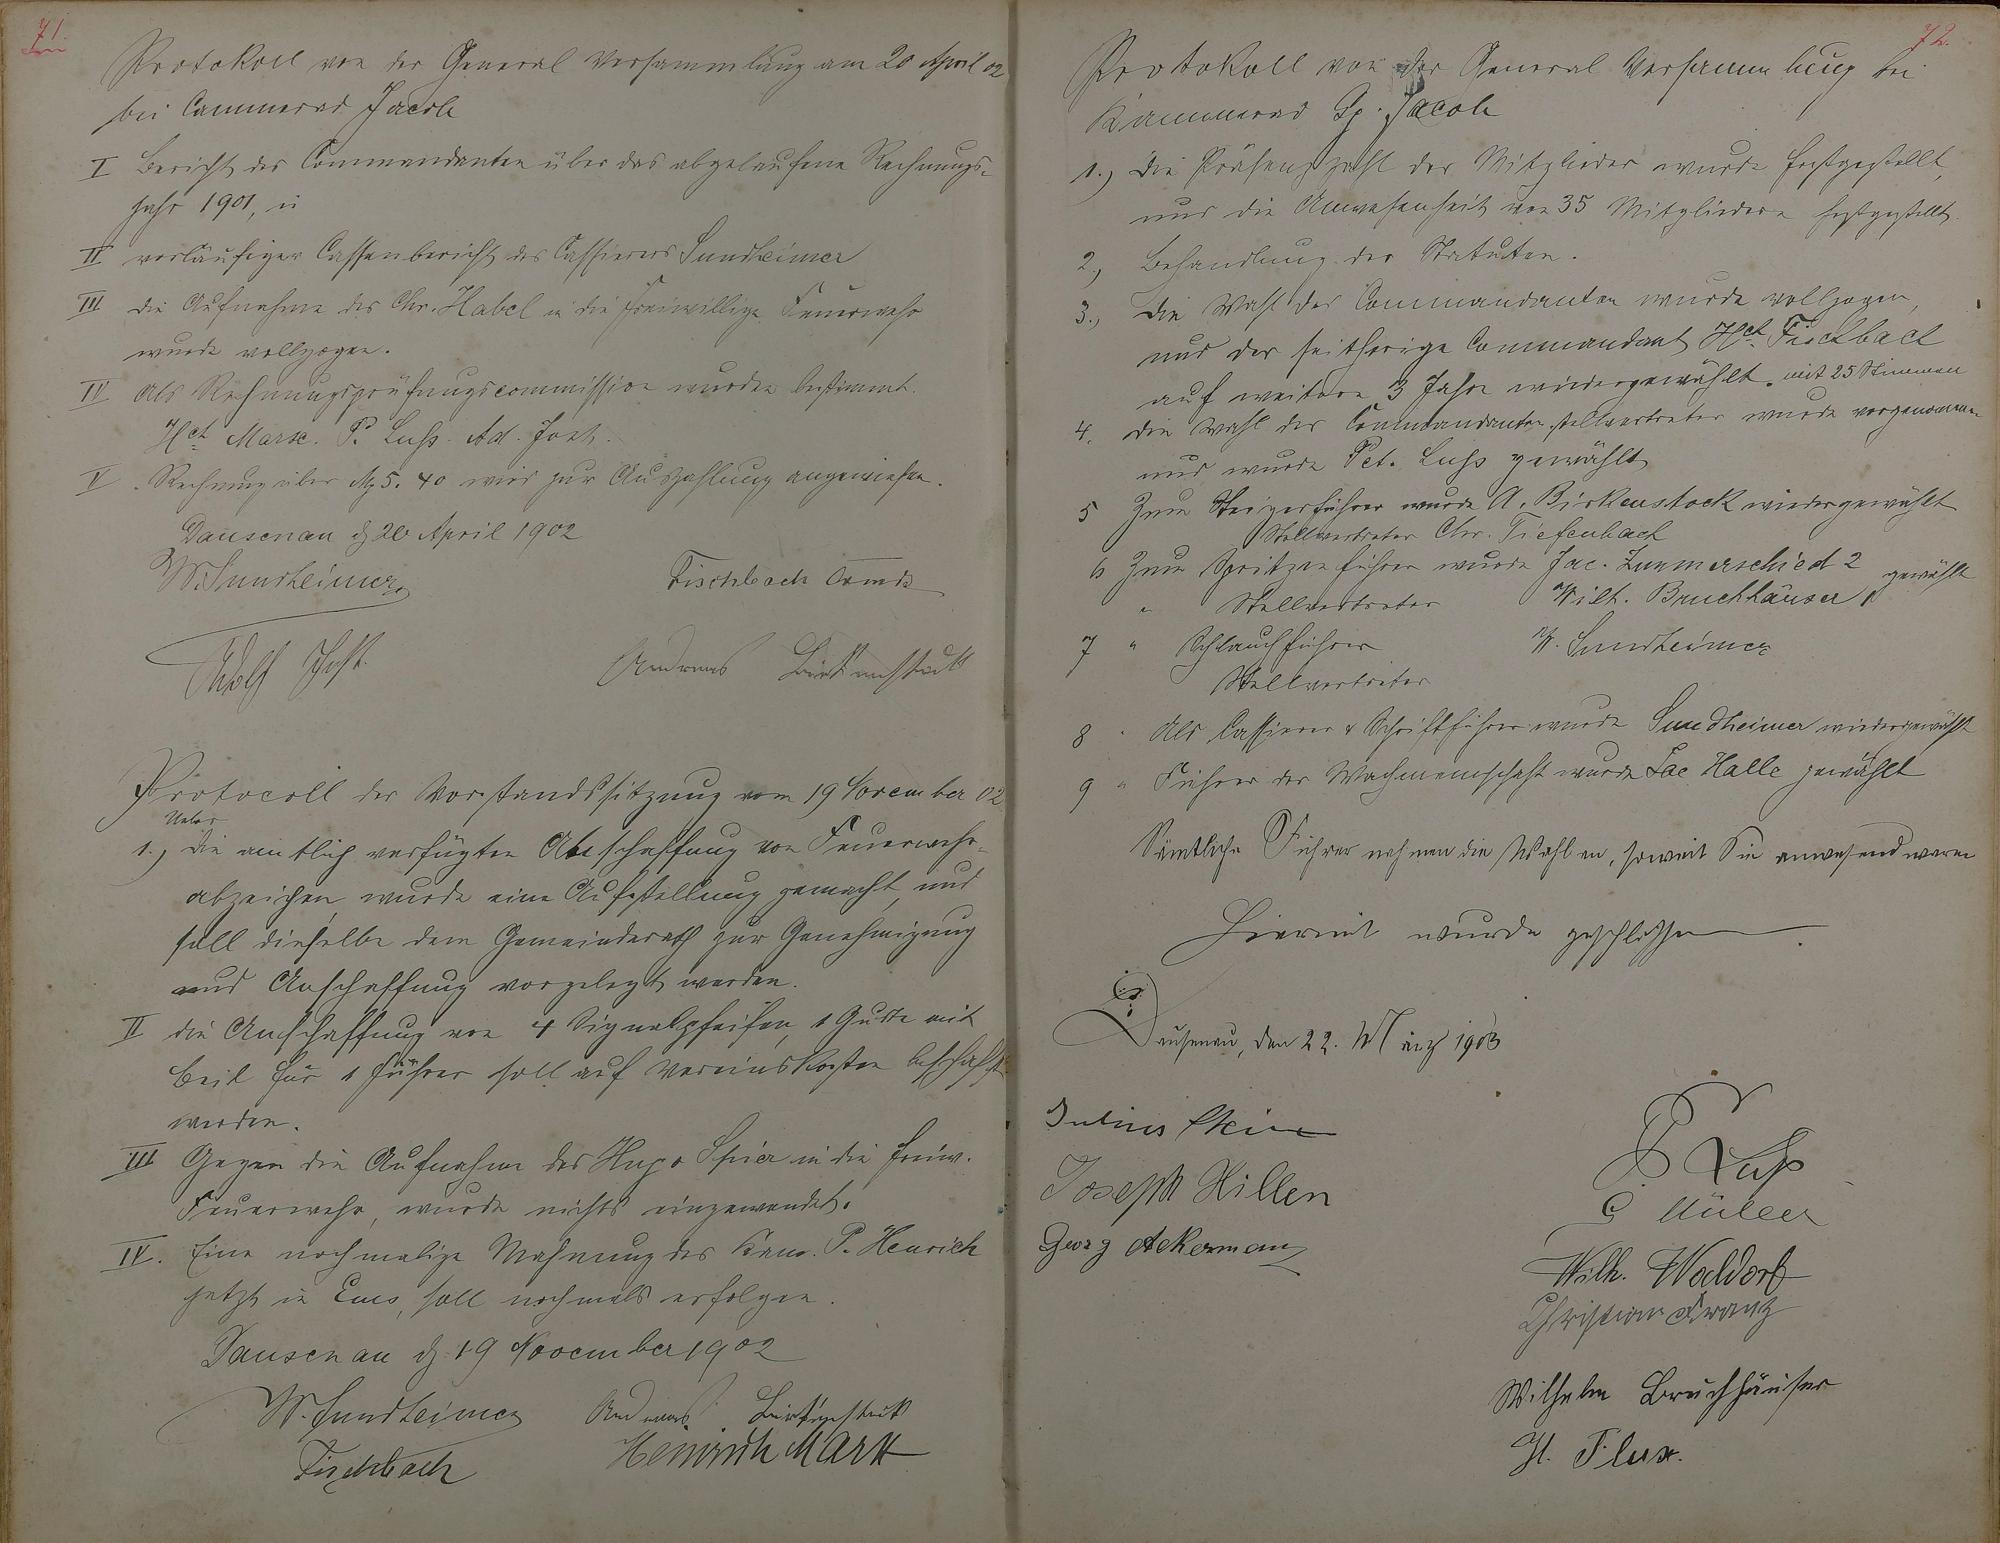 71.
Protokoll von der General Versammlung am 20 April 02
bei Cammerad Jacob
I Bericht des Commandanten über das abgelaufene Rechnungs-
jahr 1901, u
II vorläufiger Cassenbericht des Cassierers Sundheimer
III die Aufnahme des Chr. Habel in die Freiwillige Feuerwehr
wurde vollzogen.
IV Als Rechnungsprüfungscommission wurden bestimmt.
Hch Marx. P. Luss. Ad. Jost.
V. Rechnung über M 5.40 wird zur Auszahlung angewiesen.
Dausenau d 20 April 1902
W. Sundheimer Fischbach Comdt
Adolf Jost. Andreas Birkenstock
Protocoll der Vorstandssitzung vom 19 November 02
Ueber
1., die amtlich verfügten Anschaffung von Feuerwehr-
abzeichen wurde eine Aufstellung gemacht, und
soll dieselbe dem Gemeinderath zur Genehmigung
und Anschaffung vorgelegt werden.
II die Anschaffung von 4 Signalpfeifen, 1 Gurte mit
Beil für 1 Führer soll auf Vereinskosten beschafft
werden.
III Gegen die Aufnahme des Hugo Spier in die freiw.
Feuerwehr, wurde nichts eingewendet.
IV. Eine nochmalige Mahnung des Kam. P. Henrich
jetzt in Ems, soll nochmals erfolgen.
Dausenau d 19 November 1902
W. Sundheimer Andreas Birkenstock
Fischbach Heinrich Marx
72.
Protokoll von der General Versammlung bei
Kammerad Jacob
1., Die Präsenzzahl der Mitglieder wurde festgestellt,
und die Anwesenheit von 35 Mitgliedern festgestellt.
2., Behandlung der Statuten.
3., Die Wahl des Commandanten wurde vollzogen,
und der seitherige Commandant Hch. Fischbach
auf weitere 3 Jahre wiedergewählt. mit 25 Stimmen
4. Die Wahl des Commandantenstellvertreter wurde vorgenommen
und wurde Pet. Luss gewählt
5 Zum Steigerführer wurde A. Birkenstock wiedergewählt
Stellvertreter Chr. Tiefenbach
6 Zum Spritzenführer wurde Jac. Zimmerschied 2 gewählt
" Stellvertreter Wilh. Bruchhäuser
7 " Schlauchführer W. Sundheimer
Stellvertreter
8 " Als Cassierer & Schriftführer wurde Sundheimer wiedergewählt
9 " Führer der Wachmannschaft wurde Jac Halle gewählt
Sämtliche Führer nehmen die Wahl an, soweit Sie anwesend waren
Hiermit wurde geschlossen
Dausenau, den 22. März 1903
Julius Stein
P Luss
Joseph Hillen
G Müller
Georg Ackermann
Wilh. Waldorf
Christian Kranz
Wilhelm Bruchhäuser
H. Flux.